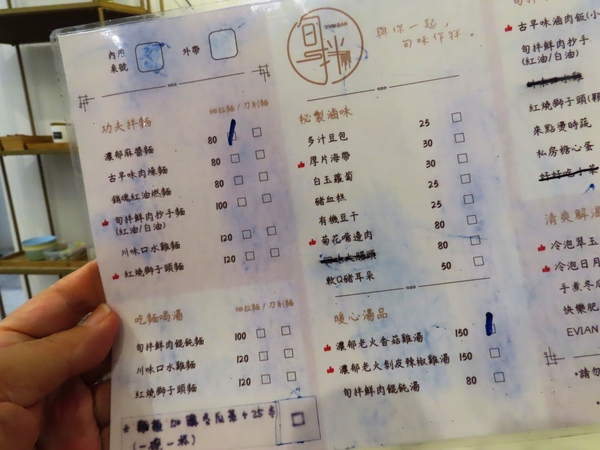 內用
桌號
外帶
旬拌
與你一起，
旬味作拌。
功夫拌麵
細拉麵 / 刀削麵
濃郁麻醬麵 80
古早味肉燥麵 80
銷魂紅油燃麵 80
旬拌鮮肉抄手麵 100
(紅油/白油)
川味口水雞麵 120
紅燒獅子頭麵 120
吃麵喝湯
細拉麵 / 刀削麵
旬拌鮮肉餛飩麵 100
川味口水雞麵 120
紅燒獅子頭麵 120
+25元
(一碗一杯)
秘製滷味
多汁豆包 25
厚片海帶 30
白玉蘿蔔 30
豬血糕 25
有機豆干 25
菊花嘴邊肉 80
80
軟Q豬耳朵 50
暖心湯品
濃郁老火香菇雞湯 150
濃郁老火剝皮辣椒雞湯 150
旬拌鮮肉餛飩湯 80
古早味滷肉飯(小
旬拌鮮肉抄手
(紅油/白油)
紅燒獅子頭(顆
來點燙時蔬
私房糖心蛋
清爽解渴
冷泡翠玉
冷泡日月
手煮冬瓜
快樂肥
EVIAN
*請勿